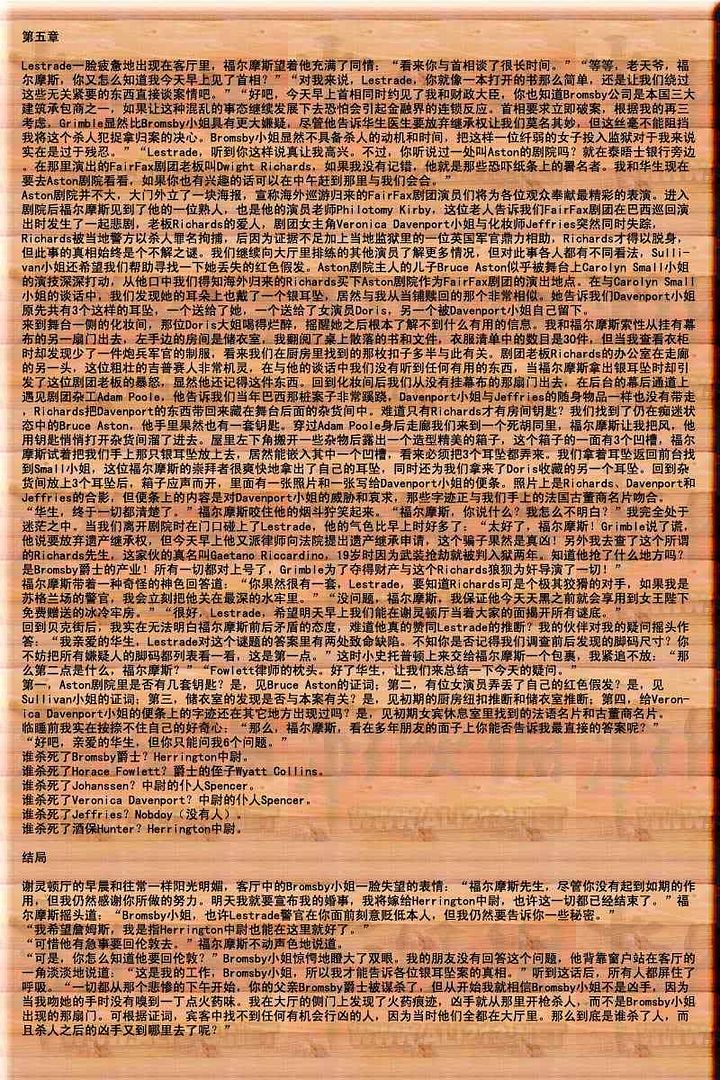 第五章
Lestrade一脸疲惫地出现在客厅里，福尔摩斯望着他充满了同情：“看来你与首相谈了很长时间。”“等等，老天爷，福
尔摩斯，你又怎么知道我今天早上见了首相？”“对我来说，Lestrade，你就像一本打开的书那么简单，还是让我们绕过
这些无关紧要的东西直接谈案情吧。”“好吧，今天早上首相同时约见了我和财政大臣，你也知道Bromsby公司是本国三大
建筑承包商之一，如果让这种混乱的事态继续发展下去恐怕会引起金融界的连锁反应。首相要求立即破案，根据我的再三
考虑，Grimble显然比Bromsby小姐具有更大嫌疑，尽管他告诉华生医生要放弃继承权让我们莫名其妙，但这丝毫不能阻挡
我将这个杀人犯捉拿归案的决心。Bromsby小姐显然不具备杀人的动机和时间，把这样一位纤弱的女子投入监狱对于我来说
实在是过于残忍。” “Lestrade，听到你这样说真让我高兴。不过，你听说过一处叫Aston的剧院吗？就在泰晤士银行旁边
。在那里演出的FairFax剧团老板叫Dwight Richards，如果我没有记错，他就是那些恐吓纸条上的署名者。我和华生现在
要去Aston剧院看看，如果你也有兴趣的话可以在中午赶到那里与我们会合。”
Aston剧院并不大，大门外立了一块海报，宣称海外巡游归来的FairFax剧团演员们将为各位观众奉献最精彩的表演。进入
剧院后福尔摩斯见到了他的一位熟人，也是他的演员老师Philotomy Kirby，这位老人告诉我们FairFax剧团在巴西巡回演
出时发生了一起悲剧，老板Richards的爱人，剧团女主角Veronica Davenport小姐与化妆师Jeffries突然同时失踪，
Richards被当地警方以杀人罪名拘捕，后因为证据不足加上当地监狱里的一位英国军官鼎力相助，Richards才得以脱身，
但此事的真相始终是个不解之谜。我们继续向大厅里排练的其他演员了解更多情况，但对此事各人都有不同看法，Sulli-
van小姐还希望我们帮助寻找一下她丢失的红色假发。Aston剧院主人的儿子Bruce Aston似乎被舞台上Carolyn Small小姐
的演技深深打动，从他口中我们得知海外归来的Richards买下Aston剧院作为FairFax剧团的演出地点。在与Carolyn Small
小姐的谈话中，我们发现她的耳朵上也戴了一个银耳坠，居然与我从当铺赎回的那个非常相似。她告诉我们Davenport小姐
原先共有3个这样的耳坠，一个送给了她，一个送给了女演员Doris，另一个被Davenport小姐自己留下。
来到舞台一侧的化妆间，那位Doris大姐喝得烂醉，摇醒她之后根本了解不到什么有用的信息。我和福尔摩斯索性从挂有幕
布的另一扇门出去，左手边的房间是储衣室，我翻阅了桌上散落的书和文件，衣服清单中的数目是30件，但当我查看衣柜
时却发现少了一件炮兵军官的制服，看来我们在厨房里找到的那枚扣子多半与此有关。剧团老板Richards的办公室在走廊
的另一头，这位粗壮的吉普赛人非常机灵，在与他的谈话中我们没有听到任何有用的东西，当福尔摩斯拿出银耳坠时却引
发了这位剧团老板的暴怒，显然他还记得这件东西。回到化妆间后我们从没有挂幕布的那扇门出去，在后台的幕后通道上
遇见剧团杂工Adam Poole，他告诉我们当年巴西那桩案子非常蹊跷。Davenport小姐与Jeffries的随身物品一样也没有带走
，Richards把Davenport的东西带回来藏在舞台后面的杂货间中。难道只有Richards才有房间钥匙？我们找到了仍在痴迷状
态中的Bruce Aston，他手里果然也有一套钥匙。穿过Adam Poole身后走廊我们来到一个死胡同里，福尔摩斯让我把风，他
用钥匙悄悄打开杂货间溜了进去。屋里左下角搬开一些杂物后露出一个造型精美的箱子，这个箱子的一面有3个凹槽，福尔
摩斯试着把我们手上那只银耳坠放上去，居然能嵌入其中一个凹槽，看来必须把3个耳坠都弄来。我们拿着耳坠返回前台找
到Small小姐，这位福尔摩斯的崇拜者很爽快地拿出了自己的耳坠，同时还为我们拿来了Doris收藏的另一个耳坠。回到杂
货间放上3个耳坠后，箱子应声而开，里面有一张照片和一张写给Davenport小姐的便条。照片上是Richards、Davenport和
Jeffries的合影，但便条上的内容是对Davenport小姐的威胁和哀求，那些字迹正与我们手上的法国古董商名片吻合。
“华生，终于一切都清楚了。”福尔摩斯咬住他的烟斗狞笑起来。“福尔摩斯，你说什么？我怎么不明白？”我完全处于
迷茫之中。当我们离开剧院时在门口碰上了Lestrade，他的气色比早上时好多了。“太好了，福尔摩斯！Grimble说了谎，
他说要放弃遗产继承权，但今天早上他又派律师向法院提出遗产继承申请，这个骗子果然是真凶！另外我去查了这个所谓
的Richards先生，这家伙的真名叫Gaetano Riccardino，19岁时因为武装抢劫就被判入狱两年。知道他抢了什么地方吗？
是Bromsby爵士的产业！所有一切都对上号了，Grimble为了夺得财产与这个Richards狼狈为奸导演了一切！”
福尔摩斯带着一种奇怪的神色回答道：“你果然很有一套，Lestrade，要知道Richards可是个极其狡猾的对手，如果我是
苏格兰场的警官，我会立刻把他关在最深的水牢里。”“没问题，福尔摩斯，我保证他今天天黑之前就会享用到女王陛下
免费赠送的冰冷牢房。”“很好，Lestrade，希望明天早上我们能在谢灵顿厅当着大家的面揭开所有谜底。”
回到贝克街后，我实在无法明白福尔摩斯前后矛盾的态度，难道他真的赞同Lestrade的推断？我的伙伴对我的疑问摇头作
答：“我亲爱的华生，Lestrade对这个谜题的答案里有两处致命缺陷。不知你是否记得我们调查前后发现的脚码尺寸？你
不妨把所有嫌疑人的脚码都列表看一看，这是第一点。”这时小史托普顿上来交给福尔摩斯一个包裹，我紧追不放：“那
么第二点是什么，福尔摩斯？” “Fowlett律师的枕头。好了华生，让我们来总结一下今天的疑问。”
第一，Aston剧院里是否有几套钥匙？是，见Bruce Aston的证词；第二，有位女演员弄丢了自己的红色假发？是，见
Sullivan小姐的证词；第三，储衣室的发现是否与本案有关？是，见初期的厨房纽扣推断和储衣室推断；第四，给Veron-
ica Davenport小姐的便条上的字迹还在其它地方出现过吗？是，见初期女宾休息室里找到的法语名片和古董商名片。
临睡前我实在按捺不住自己的好奇心：“那么，福尔摩斯，看在多年朋友的面子上你能否告诉我最直接的答案呢？”
“好吧，亲爱的华生，但你只能问我6个问题。”
谁杀死了Bromsby爵士？Herrington中尉。
谁杀死了Horace Fowlett？爵士的侄子Wyatt Collins。
谁杀死了Johanssen？中尉的仆人Spencer。
谁杀死了Veronica Davenport？中尉的仆人Spencer。
谁杀死了Jeffries？Nobdoy（没有人）。
谁杀死了酒保Hunter？Herrington中尉。
结局
谢灵顿厅的早晨和往常一样阳光明媚，客厅中的Bromsby小姐一脸失望的表情：“福尔摩斯先生，尽管你没有起到如期的作
用，但我仍然感谢你所做的努力。明天我就要宣布我的婚事，我将嫁给Herrington中尉，也许这一切都已经结束了。”福
尔摩斯摇头道：“Bromsby小姐，也许Lestrade警官在你面前刻意贬低本人，但我仍然要告诉你一些秘密。”
“我希望詹姆斯，我是指Herrington中尉也能在这里就好了。”
“可惜他有急事要回伦敦去。”福尔摩斯不动声色地说道。
“可是，你怎么知道他要回伦敦？”Bromsby小姐惊愕地瞪大了双眼。我的朋友没有回答这个问题，他背靠窗户站在客厅的
一角淡淡地说道：“这是我的工作，Bromsby小姐，所以我才能告诉各位银耳坠案的真相。”听到这话后，所有人都屏住了
呼吸。“一切都从那个悲惨的下午开始，你的父亲Bromsby爵士被谋杀了，但从开始我就相信Bromsby小姐不是凶手，因为
当我吻她的手时没有嗅到一丁点火药味。我在大厅的侧门上发现了火药痕迹，凶手就从那里开枪杀人，而不是Bromsby小姐
出现的那扇门。可根据证词，宾客中找不到任何有机会行凶的人，因为当时他们全都在大厅里。那么到底是谁杀了人，而
且杀人之后的凶手又到哪里去了呢？”